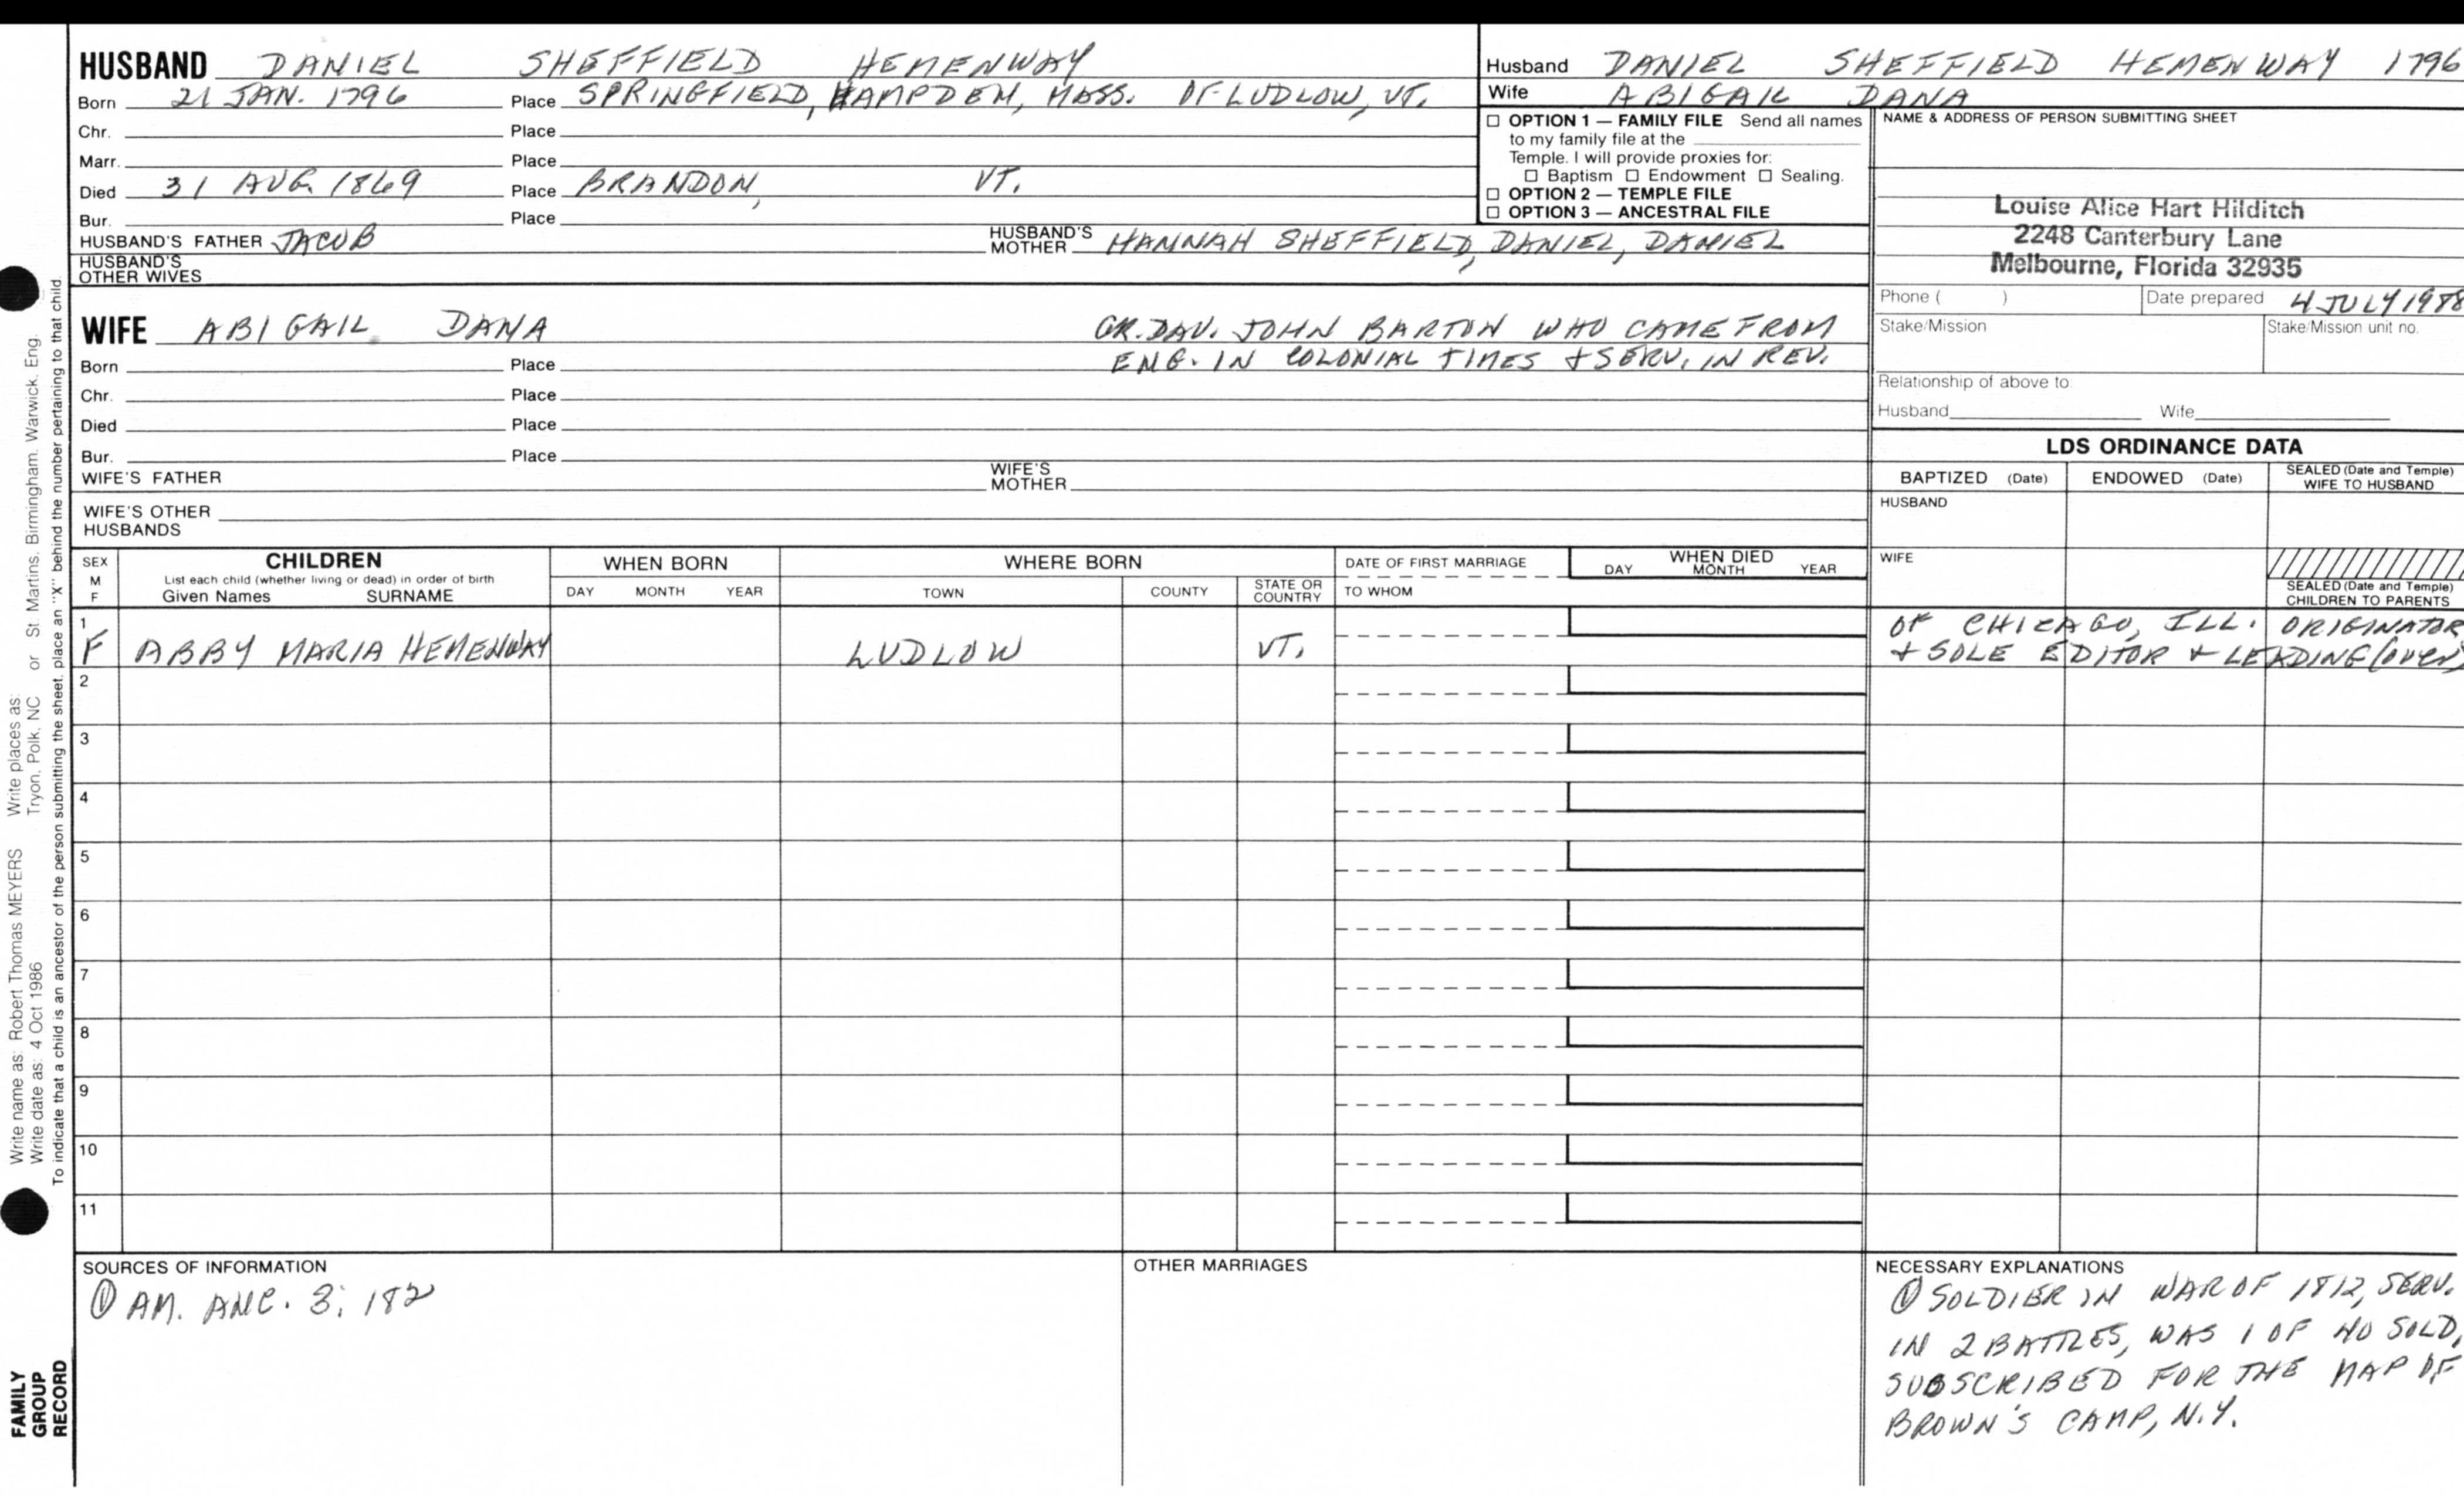 HUSBAND DANIEL SHEFFIELD HEMENWAY
Born 21 JAN. 1796 Place SPRINGFIELD, HAMPDEN, MASS. OF LUDLOW, VT.
Chr. Place
Marr. Place
Died 31 AUG. 1869 Place BRANDON, VT.
Bur. Place
HUSBAND'S FATHER JACOB HUSBAND'S MOTHER HANNAH SHEFFIELD, DANIEL, DANIEL
HUSBAND'S OTHER WIVES
Husband DANIEL SHEFFIELD HEMENWAY 1796
Wife ABIGAIL DANA
☐ OPTION 1 — FAMILY FILE Send all names
to my family file at the
Temple. I will provide proxies for:
☐ Baptism ☐ Endowment ☐ Sealing.
☐ OPTION 2 — TEMPLE FILE
☐ OPTION 3 — ANCESTRAL FILE
NAME & ADDRESS OF PERSON SUBMITTING SHEET
Louise Alice Hart Hilditch
2248 Canterbury Lane
Melbourne, Florida 32935
Phone ( ) Date prepared 4 JULY 1988
Stake/Mission Stake/Mission unit no.
Relationship of above to
Husband Wife
WIFE ABIGAIL DANA GR. DAU. JOHN BARTON WHO CAME FROM
ENG. IN COLONIAL TIMES & SERV. IN REV.
Born Place
Chr. Place
Died Place
Bur. Place
WIFE'S FATHER WIFE'S MOTHER
WIFE'S OTHER HUSBANDS
LDS ORDINANCE DATA
BAPTIZED (Date) ENDOWED (Date) SEALED (Date and Temple) WIFE TO HUSBAND
HUSBAND
WIFE
SEALED (Date and Temple) CHILDREN TO PARENTS
SEX M F
CHILDREN
List each child (whether living or dead) in order of birth
Given Names SURNAME
WHEN BORN
DAY MONTH YEAR
WHERE BORN
TOWN COUNTY STATE OR COUNTRY
DATE OF FIRST MARRIAGE
TO WHOM
WHEN DIED
DAY MONTH YEAR
1
F ABBY MARIA HEMENWAY LUDLOW VT.
OF CHICAGO, ILL. ORIGINATOR
& SOLE EDITOR & LEADING (over)
2
3
4
5
6
7
8
9
10
11
SOURCES OF INFORMATION
① AM. ANC. 3: 182
OTHER MARRIAGES
NECESSARY EXPLANATIONS
① SOLDIER IN WAR OF 1812, SERV.
IN 2 BATTLES, WAS 1 OF 40 SOLD,
SUBSCRIBED FOR THE MAP OF
BROWN'S CAMP, N.Y.
Write name as: Robert Thomas MEYERS Write places as:
Write date as: 4 Oct 1986 Tryon, Polk, NC or St. Martins, Birmingham, Warwick, Eng.
To indicate that a child is an ancestor of the person submitting the sheet, place an "X" behind the number pertaining to that child.
FAMILY
GROUP
RECORD